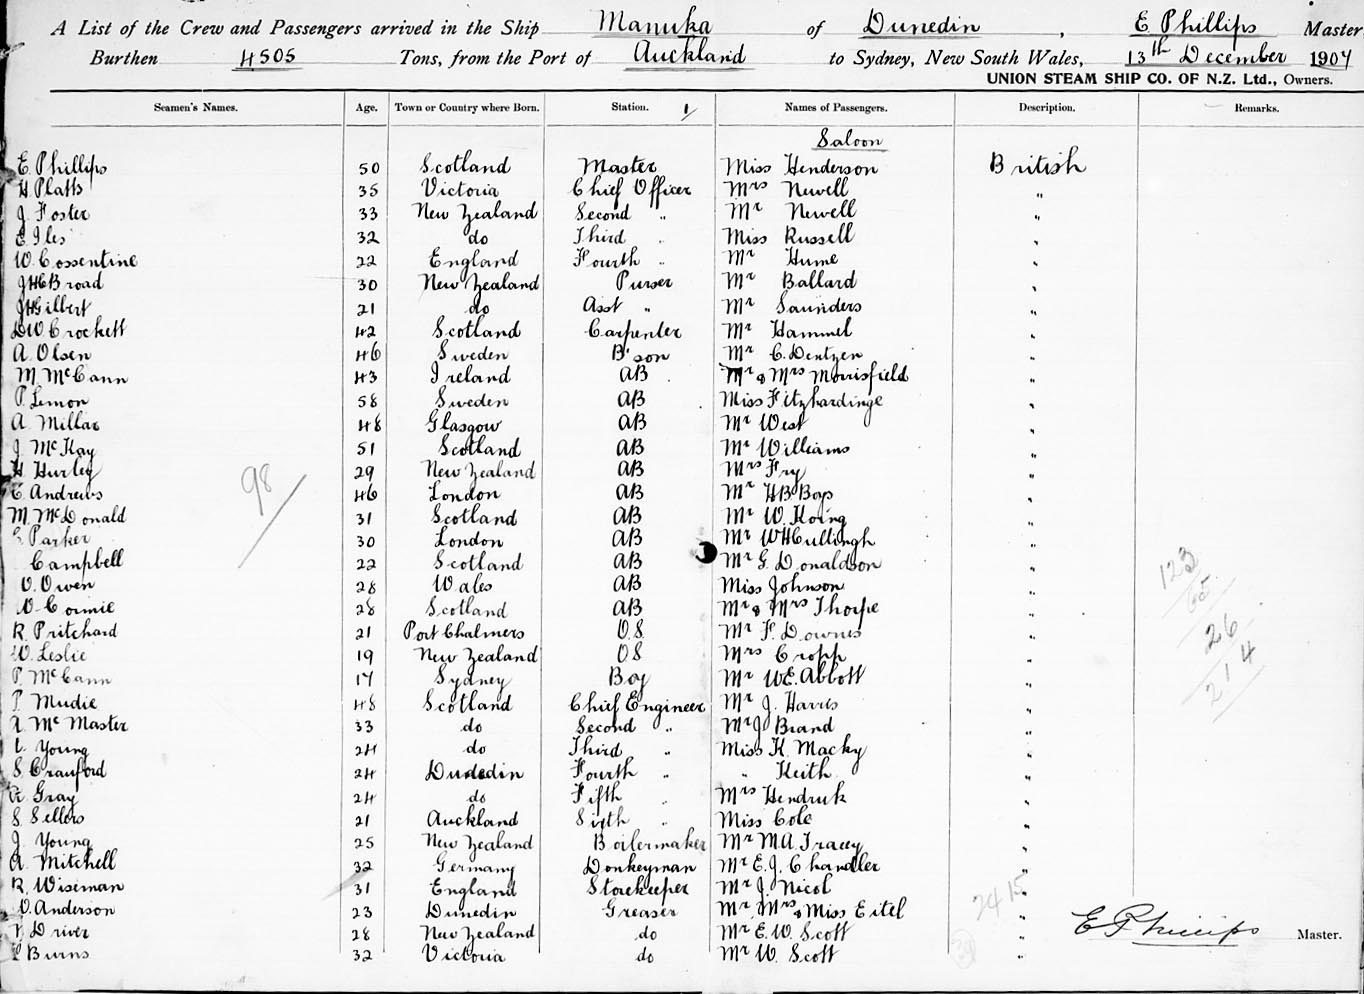 A List of the Crew and Passengers arrived in the Ship Manuka of Dunedin, E Phillips Master
Burthen 4505 Tons, from the Port of Auckland to Sydney, New South Wales, 13th December 1907
UNION STEAM SHIP CO. OF N.Z. Ltd., Owners.
Seamen's Names. Age. Town or Country where Born. Station. 1/ Names of Passengers. Description. Remarks.
Saloon
E. Phillips 50 Scotland Master Miss Henderson British
H Platts 35 Victoria Chief Officer Mrs Newell "
J Foster 33 New Zealand Second " Mr Newell "
E Iles 32 do Third " Miss Russell "
W. Cossentine 22 England Fourth " Mr Hume "
JHC Broad 30 New Zealand Purser Mr Ballard "
JH Gilbert 21 do Asst " Mr Saunders "
DW Crockett 42 Scotland Carpenter Mr Hammel "
A. Olsen 46 Sweden B'son Mr C. Dentzen "
M. McCann 43 Ireland AB Mr & Mrs Morrisfield "
P Lemon 58 Sweden AB Miss Fitzhardinge "
A. Millar 48 Glasgow AB Mr West "
J McKay 51 Scotland AB Mr Williams "
H Hurley 29 New Zealand AB Mrs Fry "
C. Andrews 46 London AB Mr HB Boys "
M. McDonald 31 Scotland AB Mr W. Koing "
Parker 30 London AB Mr WH Cullingh "
Campbell 22 Scotland AB Mr G. Donaldson "
O. Owen 28 Wales AB Miss Johnson "
Cormie 28 Scotland AB Mr & Mrs Thorpe "
R. Pritchard 21 Port Chalmers O.S. Mr F. Downes "
W. Leslie 19 New Zealand OS Mrs Cropp "
P. McCann 17 Sydney Boy Mr WE. Abbott "
P Mudie 48 Scotland Chief Engineer Mr J. Harris "
A. McMaster 33 do Second " Mr J Brand "
Young 24 do Third " Miss K. Macky "
S. Crauford 24 Dunedin Fourth " " Keith "
A. Gray 24 do Fifth " Mrs Hendruk "
S. Sellars 21 Auckland Sixth " Miss Cole "
J. Young 25 New Zealand Boilermaker Mr MA. Tracey "
A. Mitchell 32 Germany Donkeyman Mr E.J. Chandler "
R. Wiseman 31 England Storekeeper Mr J. Nicol "
O. Anderson 23 Dunedin Greaser Mr, Mrs & Miss Eitel "
Driver 28 New Zealand do Mr E.W. Scott "
Burns 32 Victoria do Mr W. Scott "
98
123
65
26
214
24 15
E Phillips Master.